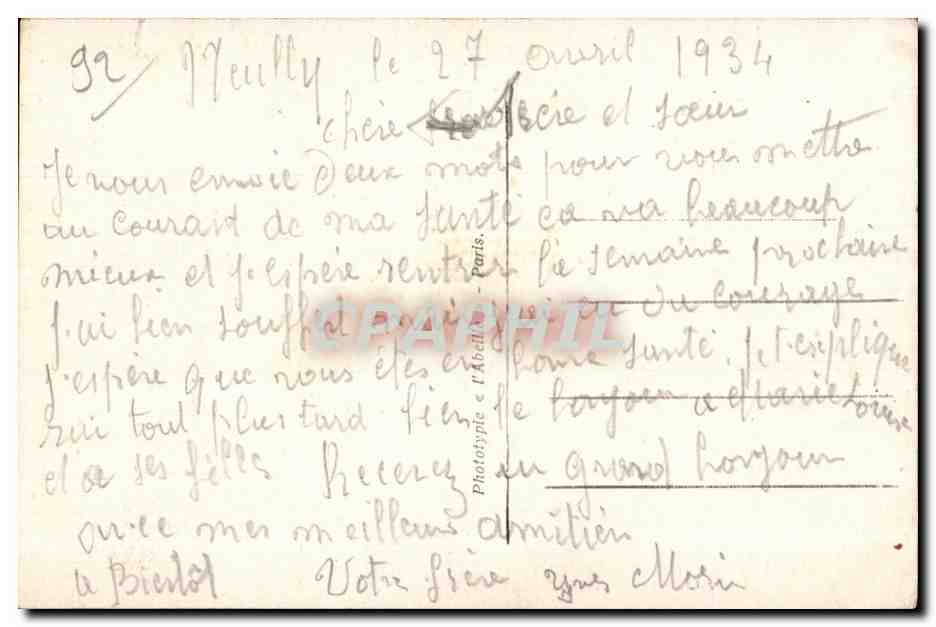 92/ Neuilly le 27 avril 1934
chère frère et sœur
Je vous envoie deux mots pour vous mettre
au courant de ma santé ca va beaucoup
mieux et j'espère rentrer la semaine prochaine
j'ai bien souffert mais j'ai eu du courage
j'espère que vous êtes en bonne santé. Je t'explique
rai tout plus tard bien le bonjour a Marie Louise
et a ses filles Recevez un grand bonjour
avec mes meilleurs amitiés
a Bientôt Votre frère Yves Morin
Phototypie « l'Abeille » - Paris.
CPAPHIL